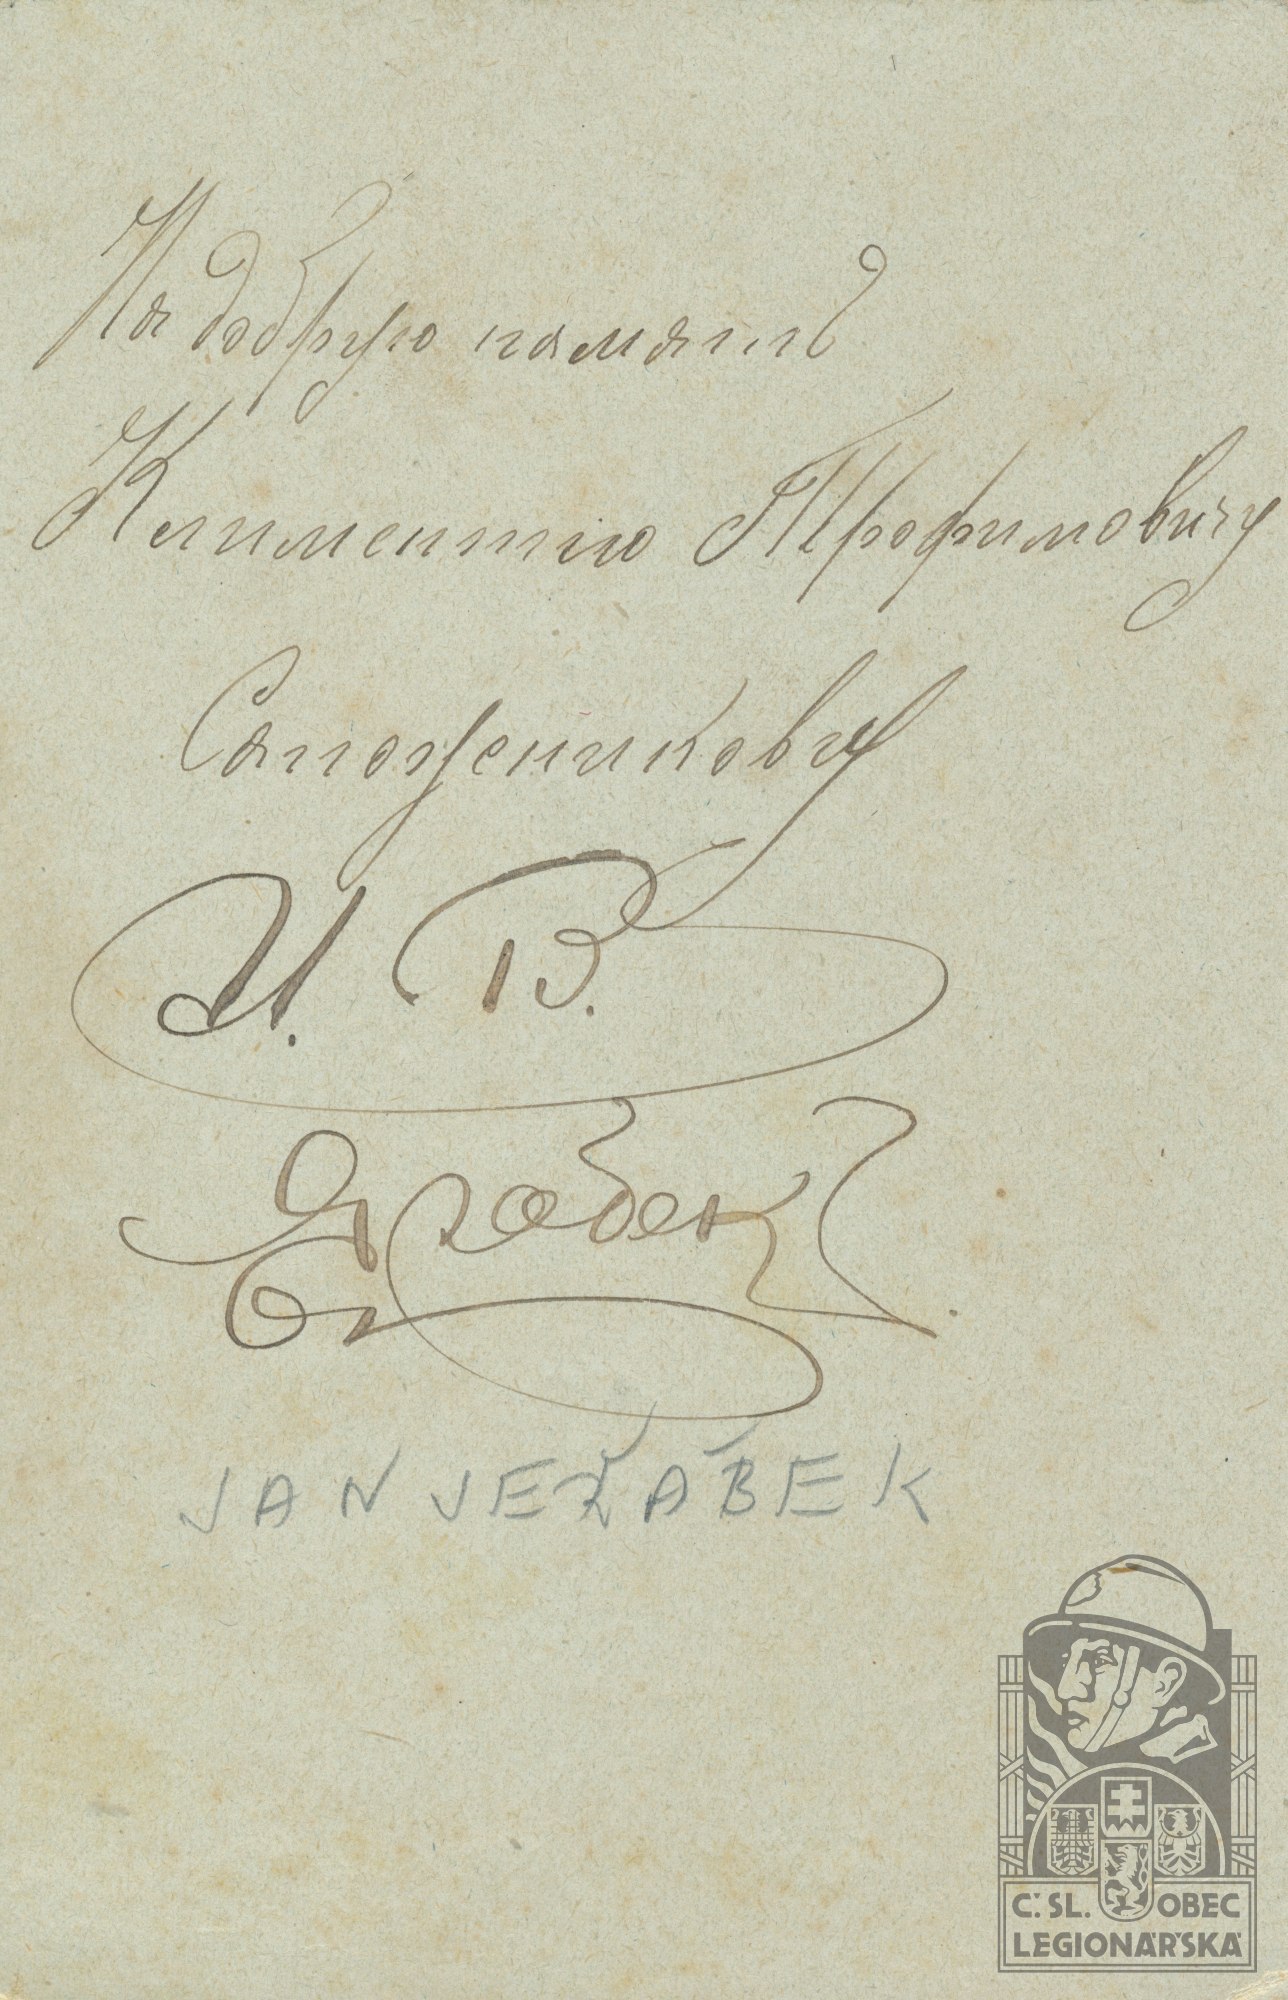 На добрую память
Климентію Трофимовичу
Сапоженикову
И. В.
Ержабек.
JAN JEŽÁBEK
Č. SL. OBEC
LEGIONÁŘSKÁ